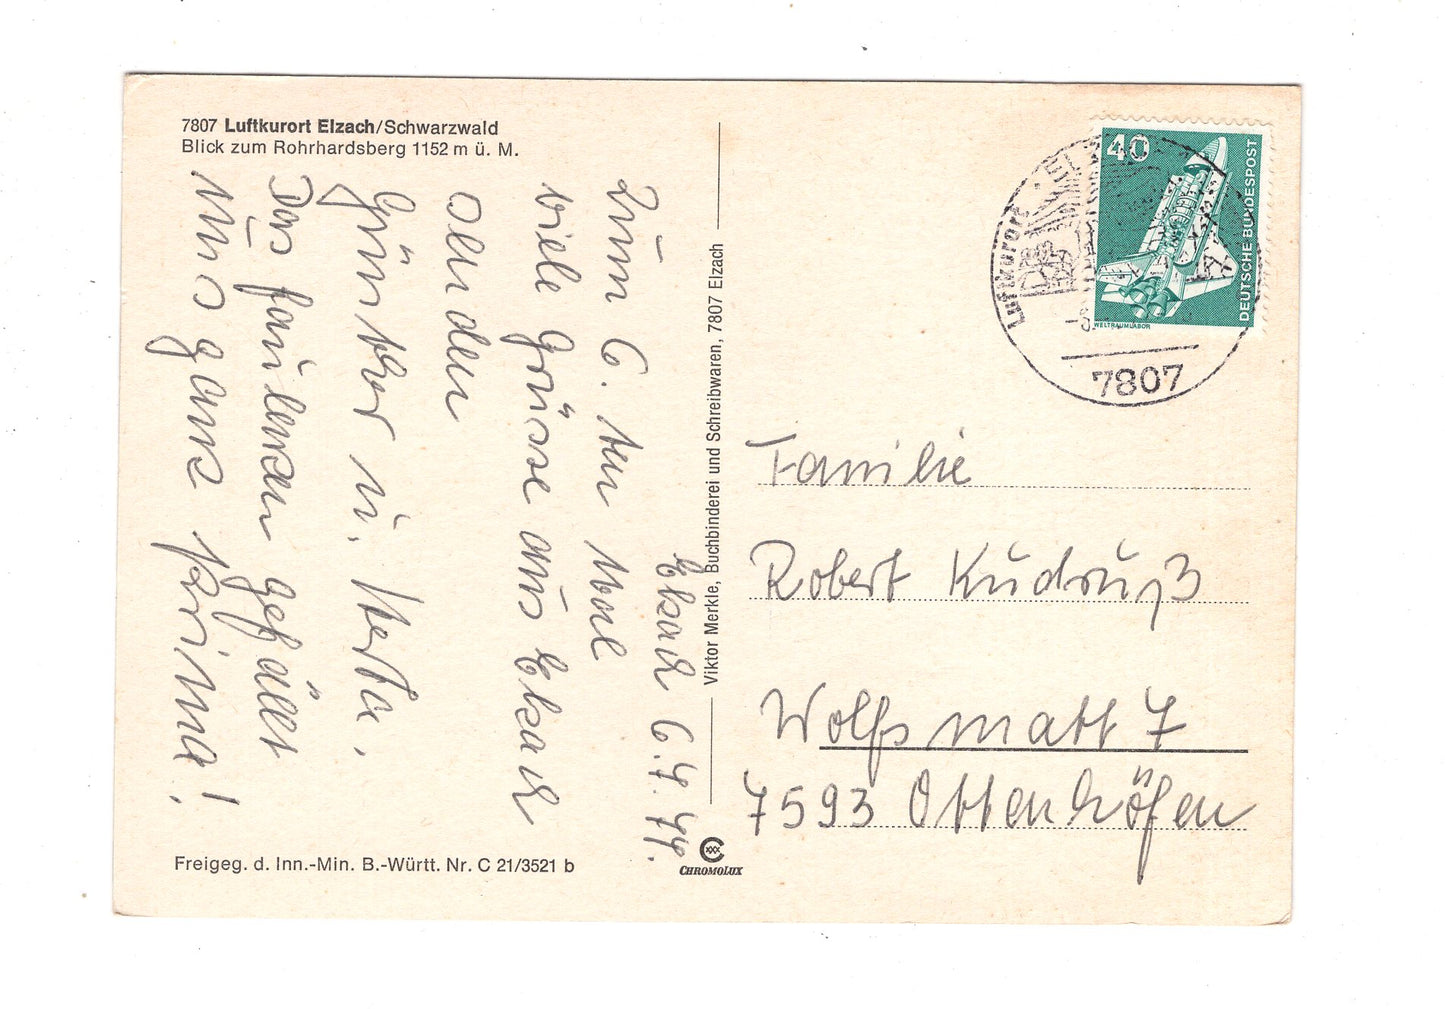 7807 Luftkurort Elzach/Schwarzwald
Blick zum Rohrhardsberg 1152 m ü. M.
Elzach 6.7.77.
Zum 6. ten Mal
viele Grüsse aus Elzach
senden
Günther u. Herta.
Das faulenzen gefällt
uns ganz prima!
Freigeg. d. Inn.-Min. B.-Württ. Nr. C 21/3521 b
Viktor Merkle, Buchbinderei und Schreibwaren, 7807 Elzach
CHROMOLUX
40
DEUTSCHE BUNDESPOST
WELTRAUMLABOR
Luftkurort
7807
Familie
Robert Kudruß
Wolfsmatt 7
7593 Ottenhöfen